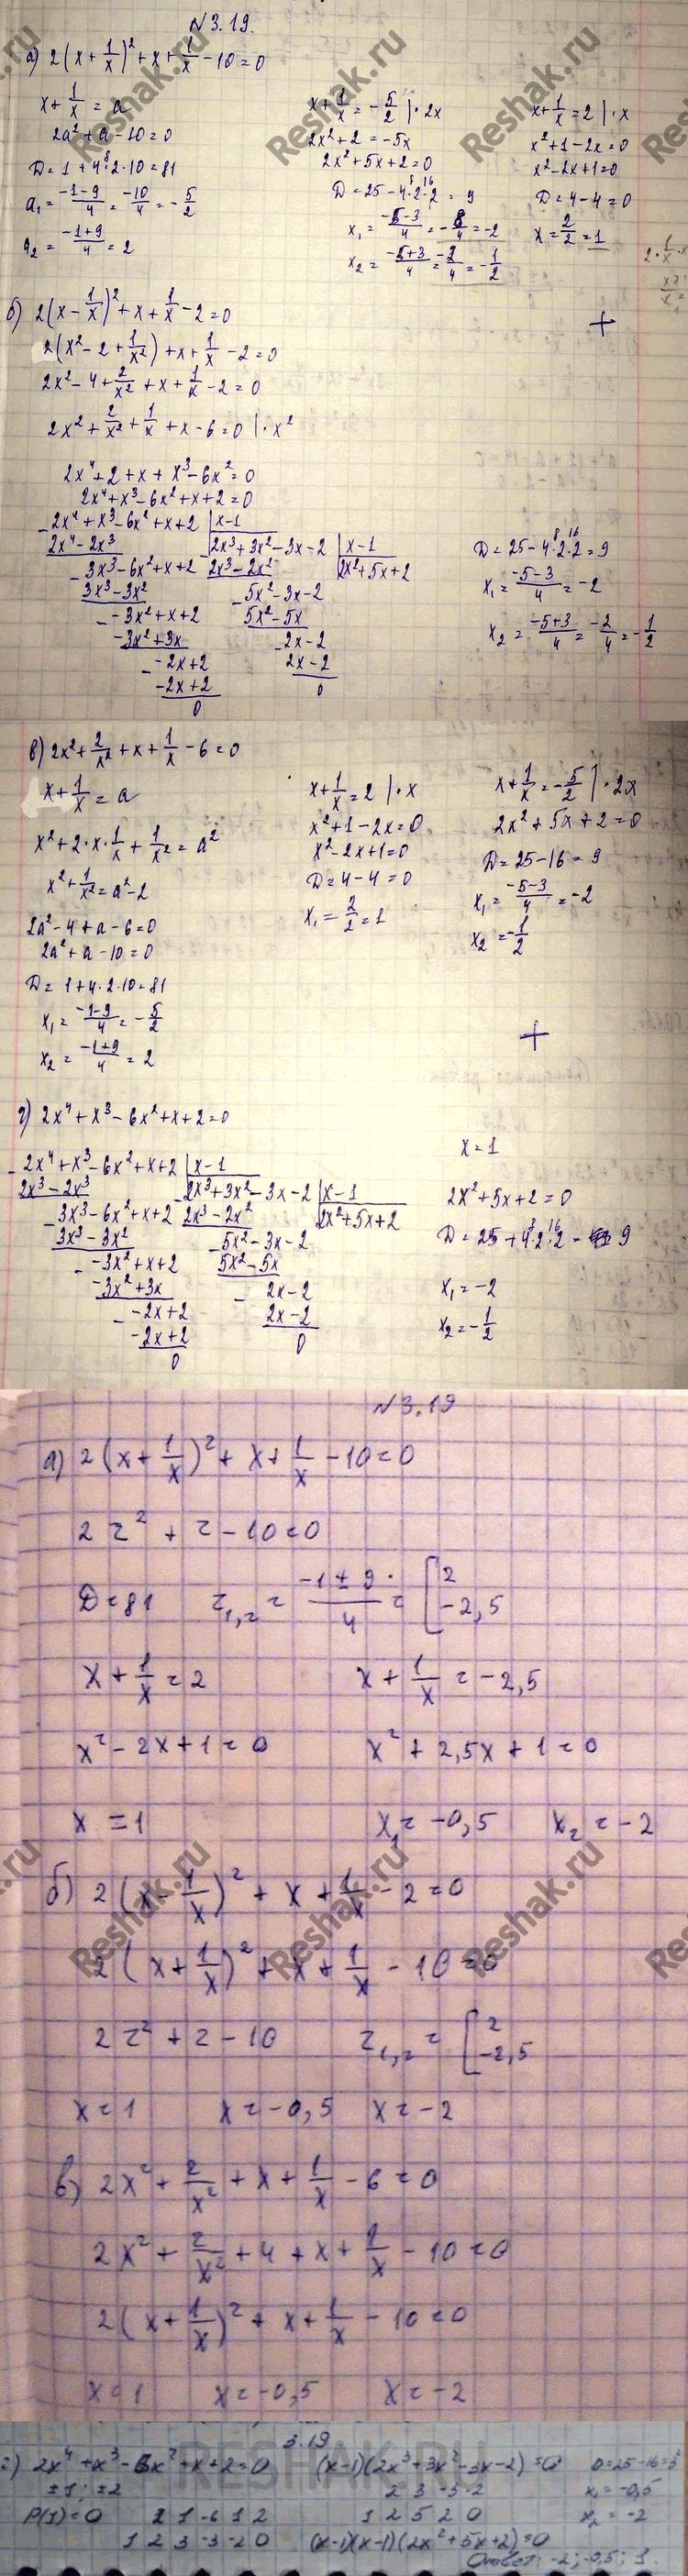 N 3.19.
а) 2(x + 1/x)² + x + 1/x - 10 = 0
x + 1/x = a
2a² + a - 10 = 0
D = 1 + 4·2·10 = 81
a₁ = (-1-9)/4 = -10/4 = -5/2
a₂ = (-1+9)/4 = 2
x + 1/x = -5/2 |·2x
2x² + 2 = -5x
2x² + 5x + 2 = 0
D = 25 - 4·2·2 = 9
x₁ = (-5-3)/4 = -8/4 = -2
x₂ = (-5+3)/4 = -2/4 = -1/2
x + 1/x = 2 |·x
x² + 1 - 2x = 0
x² - 2x + 1 = 0
D = 4 - 4 = 0
x = 2/2 = 1
б) 2(x - 1/x)² + x + 1/x - 2 = 0
2(x² - 2 + 1/x²) + x + 1/x - 2 = 0
2x² - 4 + 2/x² + x + 1/x - 2 = 0
2x² + 2/x² + 1/x + x - 6 = 0 |·x²
2x⁴ + 2 + x + x³ - 6x² = 0
2x⁴ + x³ - 6x² + x + 2 = 0
2x⁴ + x³ - 6x² + x + 2 | x - 1
2x⁴ - 2x³ 2x³ + 3x² - 3x - 2 | x - 1
3x³ - 6x² + x + 2 2x³ - 2x² 2x² + 5x + 2
3x³ - 3x² 5x² - 3x - 2
-3x² + x + 2 5x² - 5x
-3x² + 3x 2x - 2
-2x + 2 2x - 2
-2x + 2 0
0
D = 25 - 4·2·2 = 9
x₁ = (-5-3)/4 = -2
x₂ = (-5+3)/4 = -2/4 = -1/2
в) 2x² + 2/x² + x + 1/x - 6 = 0
x + 1/x = a
x² + 2·x·1/x + 1/x² = a²
x² + 1/x² = a² - 2
2a² - 4 + a - 6 = 0
2a² + a - 10 = 0
D = 1 + 4·2·10 = 81
x₁ = (-1-9)/4 = -5/2
x₂ = (-1+9)/4 = 2
x + 1/x = 2 |·x
x² + 1 - 2x = 0
x² - 2x + 1 = 0
D = 4 - 4 = 0
x₁ = 2/2 = 1
x + 1/x = -5/2 |·2x
2x² + 5x + 2 = 0
D = 25 - 16 = 9
x₁ = (-5-3)/4 = -2
x₂ = -1/2
г) 2x⁴ + x³ - 6x² + x + 2 = 0
2x⁴ + x³ - 6x² + x + 2 | x - 1
2x³ - 2x³ 2x³ + 3x² - 3x - 2 | x - 1
3x³ - 6x² + x + 2 2x³ - 2x² 2x² + 5x + 2
3x³ - 3x² 5x² - 3x - 2
-3x² + x + 2 5x² - 5x
-3x² + 3x 2x - 2
-2x + 2 2x - 2
-2x + 2 0
0
x = 1
2x² + 5x + 2 = 0
D = 25 + 4·2·2 = 9
x₁ = -2
x₂ = -1/2
N 3.19
а) 2(x + 1/x)² + x + 1/x - 10 = 0
2z² + z - 10 = 0
D = 81 z₁,₂ = (-1 ± 9)/4 = [2 -2,5
x + 1/x = 2 x + 1/x = -2,5
x² - 2x + 1 = 0 x² + 2,5x + 1 = 0
x = 1 x₁ = -0,5 x₂ = -2
б) 2(x - 1/x)² + x + 1/x - 2 = 0
2(x + 1/x)² + x + 1/x - 10 = 0
2z² + z - 10 z₁,₂ = [2 -2,5
x = 1 x = -0,5 x = -2
в) 2x² + 2/x² + x + 1/x - 6 = 0
2x² + 2/x² + 4 + x + 1/x - 10 = 0
2(x + 1/x)² + x + 1/x - 10 = 0
x = 1 x = -0,5 x = -2
3.19
г) 2x⁴ + x³ - 6x² + x + 2 = 0 (x-1)(2x³ + 3x² - 3x - 2) = 0 D = 25 - 16 = 3²
±1; ±2 2 3 -3 -2 x₁ = -0,5
P(1) = 0 2 1 -6 1 2 1 2 5 2 0 x₂ = -2
1 2 3 -3 -2 0 (x-1)(x-1)(2x² + 5x + 2) = 0
Ответ: -2; -0,5; 1.
Reshak.ru
RESHAK.RU